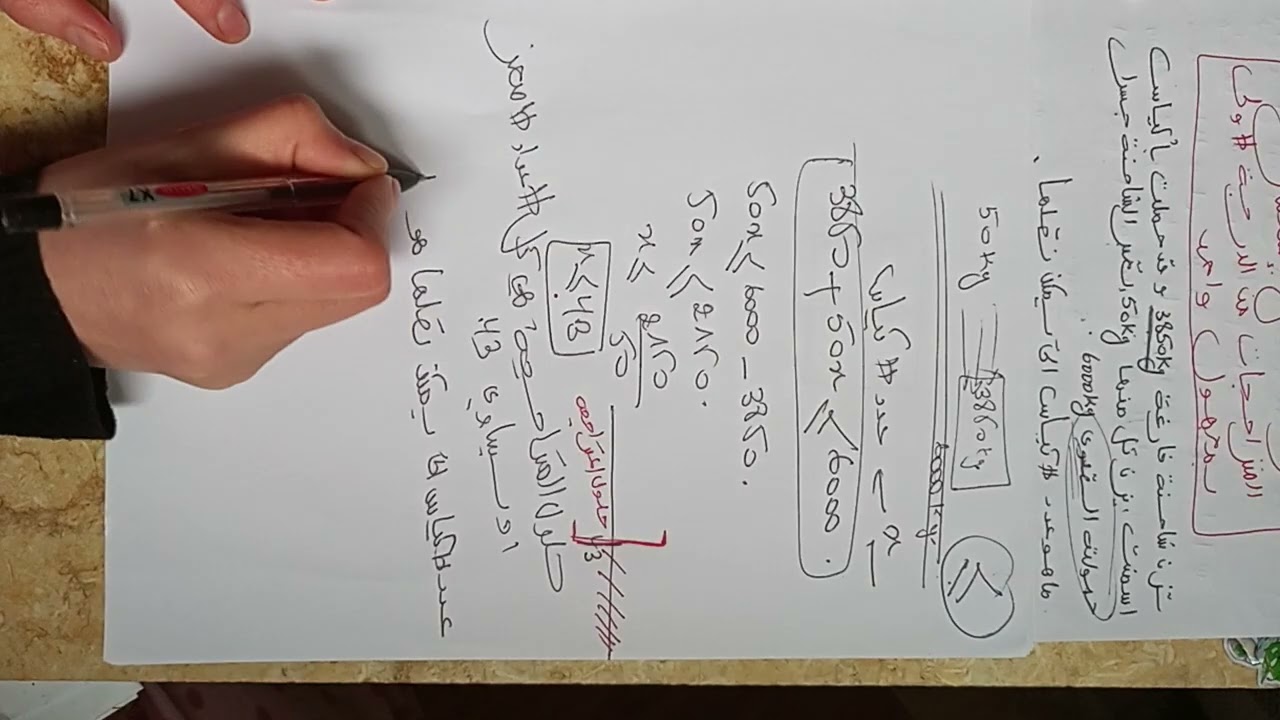 المتراجحات من الدرجة الأولى
بمجهول واحد
تزن شاحنة فارغة 3850kg وقد حملت بأكياس
اسمنت يزن كل منها 50kg تعبر الشاحنة جسر
حمولته القصوى 6000kg.
ماهو عدد الأكياس التي يمكن نقلها
50kg
3850kg
6000kg
≤
x ← عدد الأكياس
3850 + 50x ≤ 6000.
50x ≤ 6000 - 3850.
50x ≤ 2150.
x ≤ 2150/50
x ≤ 43
43
حلول المتراجحة هي كل الأعداد الأصغر
او تساوي 43
عدد الأكياس التي يمكن نقلها هو
X7